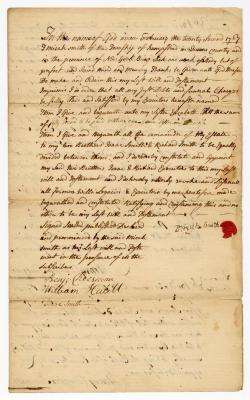 In the name of God Amen February the twenty second 1757
I micah smith of the Township of hempstead in Queens county and
in the province of New York Being sick and weak of body but of
perfect and Sound mind and memory thanks be given unto God therefore
Do make and Ordain this my Last will and Testament
Imprimis I order that all my Just Debts and funeral Charges
be fully paid and Satisfied by my Executors hereafter named
Item I Give and bequeath unto my sister Elizabeth the sum
of
Item I Give and bequeath all the remainder of my Estate
to my two Brothers Isaac Smith & Richard Smith to be Equally
divided between them, and I likewise constitute and appoint
my said two Brothers Isaac & Richard Executors to this my Last
will and Testament and I do hereby revoke and disannul
all former wills Legacies & Executors by me heretofore made
bequeathed and constituted Ratifying and Confirming this and no
other to be my Last will and Testament
Signed Sealed published Declared
and pronounced by the said micah
smith as my Last will and Test
ment in the presence of us the
Subscribers
Smith
William Hubbll
Smith